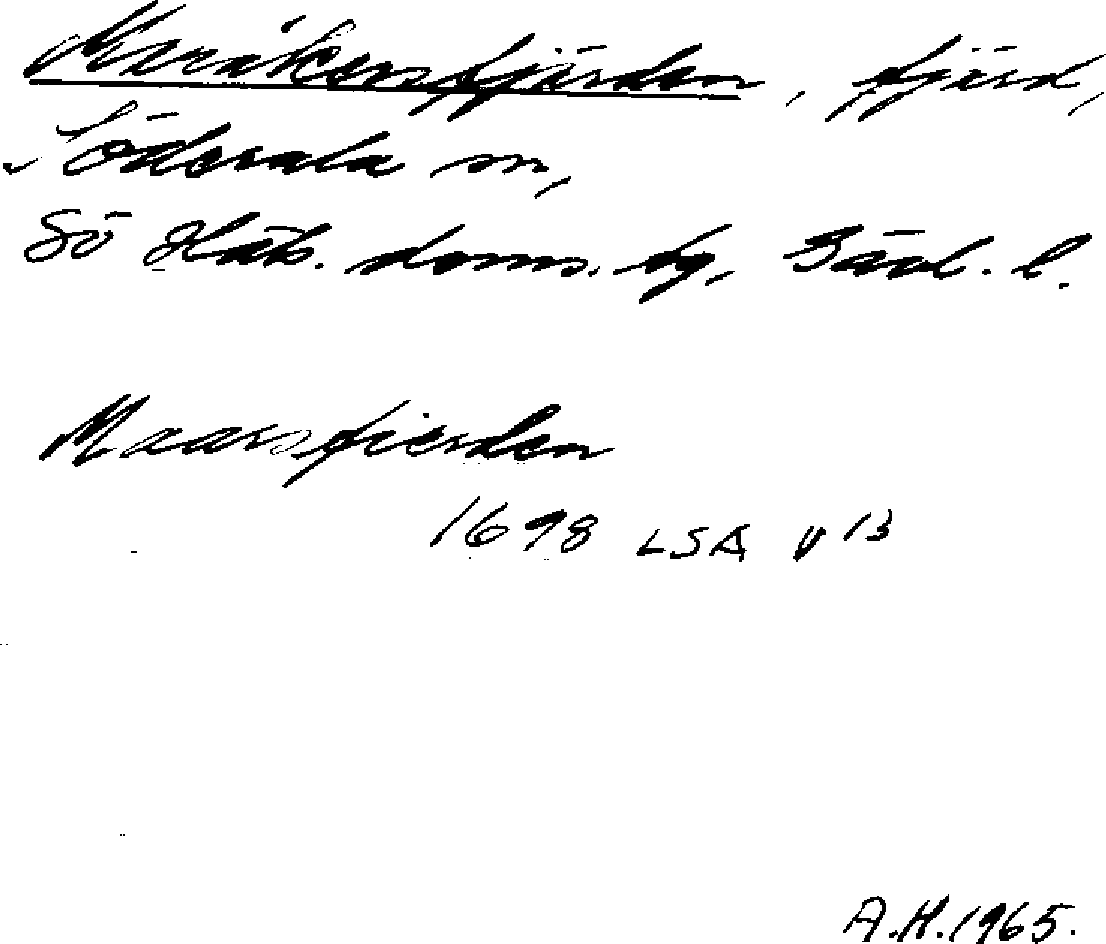 Maråkersfjärden, fjärd,
Söderala sn,
Sö Häls. doms. sg, Gävl. l.
Maarsfierden
1698 LSA V 13
A.H. 1965.